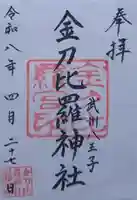 奉拝
武州八王子
金刀比羅神社
令和八年四月二十七日